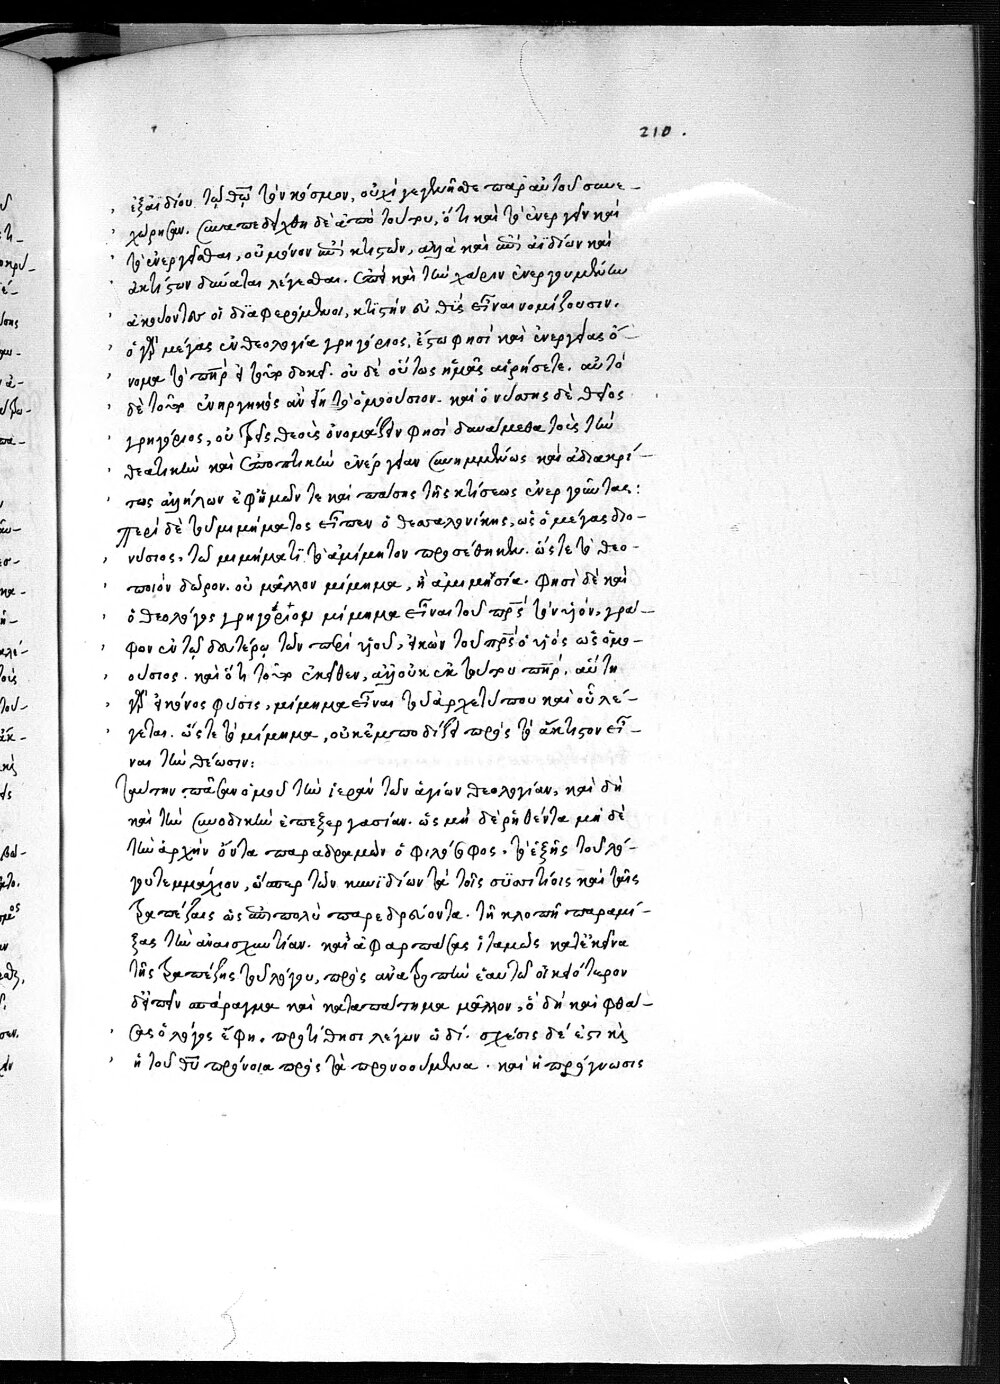 210.
ἐξ ἀϊδίου τῷ θεῷ τὸν κόσμον, οὐχὶ γεγενῆσθαι παρ' αὐτοῦ συνε-
χώρησαν. συναπεδείχθη δὲ ἀπὸ τούτου, ὅτι καὶ τὸ ἐνεργεῖν καὶ
τὸ ἐνεργεῖσθαι, οὐ μόνον ἐπὶ κτιστῶν, ἀλλὰ καὶ ἐπὶ ἀϊδίων καὶ
ἀκτίστων δύναται λέγεσθαι. ἐπεὶ καὶ τὴν χάριν ἐνεργουμένην
ἀκούοντες οἱ διαφερόμενοι, κτιστὴν εὐθὺς εἶναι νομίζουσιν.
ὁ γὰρ μέγας ἐν θεολογίᾳ γρηγόριος, ἔστω φησὶ καὶ ἐνεργείας ὄ-
νομα τὸ πατὴρ εἰ τοῦτο δοκεῖ. οὐδὲ οὕτως ἡμᾶς αἱρήσετε. αὐτὸ
δὲ τοῦτο ἐνηργηκὼς ἂν εἴη τὸ ὁμοούσιον. καὶ ὁ νύσσης δὲ θεῖος
γρηγόριος, οὐ τρεῖς θεοὺς ὀνομάζειν φησὶ δυνάμεθα τοὺς τὴν
θεατικὴν καὶ ἐποπτικὴν ἐνέργειαν συνημμένως καὶ ἀδιακρί-
τως ἀλλήλων ἐφ' ἡμῶν τε καὶ πάσης τῆς κτίσεως ἐνεργοῦντας:
Περὶ δὲ τοῦ μιμήματος εἶπεν ὁ θεσσαλονίκης, ὡς ὁ μέγας διο-
νύσιος, τῷ μιμήματι τὸ ἀμίμητον προσέθηκεν. ὥστε τὸ θεο-
ποιὸν δῶρον. οὐ μᾶλλον μίμημα, ἢ ἀμιμησία. φησὶ δὲ καὶ
ὁ θεολόγος γρηγόριος μίμημα εἶναι τοῦ πατρὸς τὸν υἱὸν, γρά-
φων ἐν τῷ δευτέρῳ τῶν περὶ υἱοῦ, εἰκὼν τοῦ πατρὸς ὁ υἱὸς ὡς ὁμο-
ούσιος. καὶ ὅτι τοῦτο ἐκεῖθεν, ἀλλ' οὐκ ἐκ τούτου πατήρ. αὕτη
γὰρ εἰκόνος φύσις, μίμημα εἶναι τοῦ ἀρχετύπου καὶ οὗ λέ-
γεται. ὥστε τὸ μίμημα, οὐκ ἐμποδίζει πρὸς τὸ ἄκτιστον εἶ-
ναι τὴν θέωσιν:
ταύτην πᾶσαν ὁμοῦ τὴν ἱερὰν τῶν ἁγίων θεολογίαν, καὶ δὴ
καὶ τὴν συνοδικὴν ἐπεξεργασίαν. ὡς μὴ δὲ ῥηθέντα μὴ δὲ
τὴν ἀρχὴν ὄντα παραδραμὼν ὁ φιλόσοφος. τὸ ἑξῆς τοῦ λό-
γου τεμμάχιον, ὥσπερ τῶν κυνιδίων τὰ τοῖς συσσιτίοις καὶ ταῖς
τραπέζαις ὡς ἐπιπολὺ παρεδρεύοντα. τῇ κλοπῇ παραμί-
ξας τὴν ἀναισχυντίαν. καὶ ἀφαρπάσας ἰταμῶς κατ' ἐκεῖνα
τῆς τραπέζης τοῦ λόγου, πρὸς ἀνατροπὴν ἑαυτῷ οἰκειότερον
δ' εἰπεῖν σπάραγμα καὶ καταπάτημα μᾶλλον, ὃ δὴ καὶ φθά-
σας ὁ λόγος ἔφη. προτίθησι λέγων ὡδί. σχέσις δέ ἐστι καὶ
ἡ τοῦ θεοῦ πρόνοια πρὸς τὰ προνοούμενα. καὶ ἡ πρόγνωσις